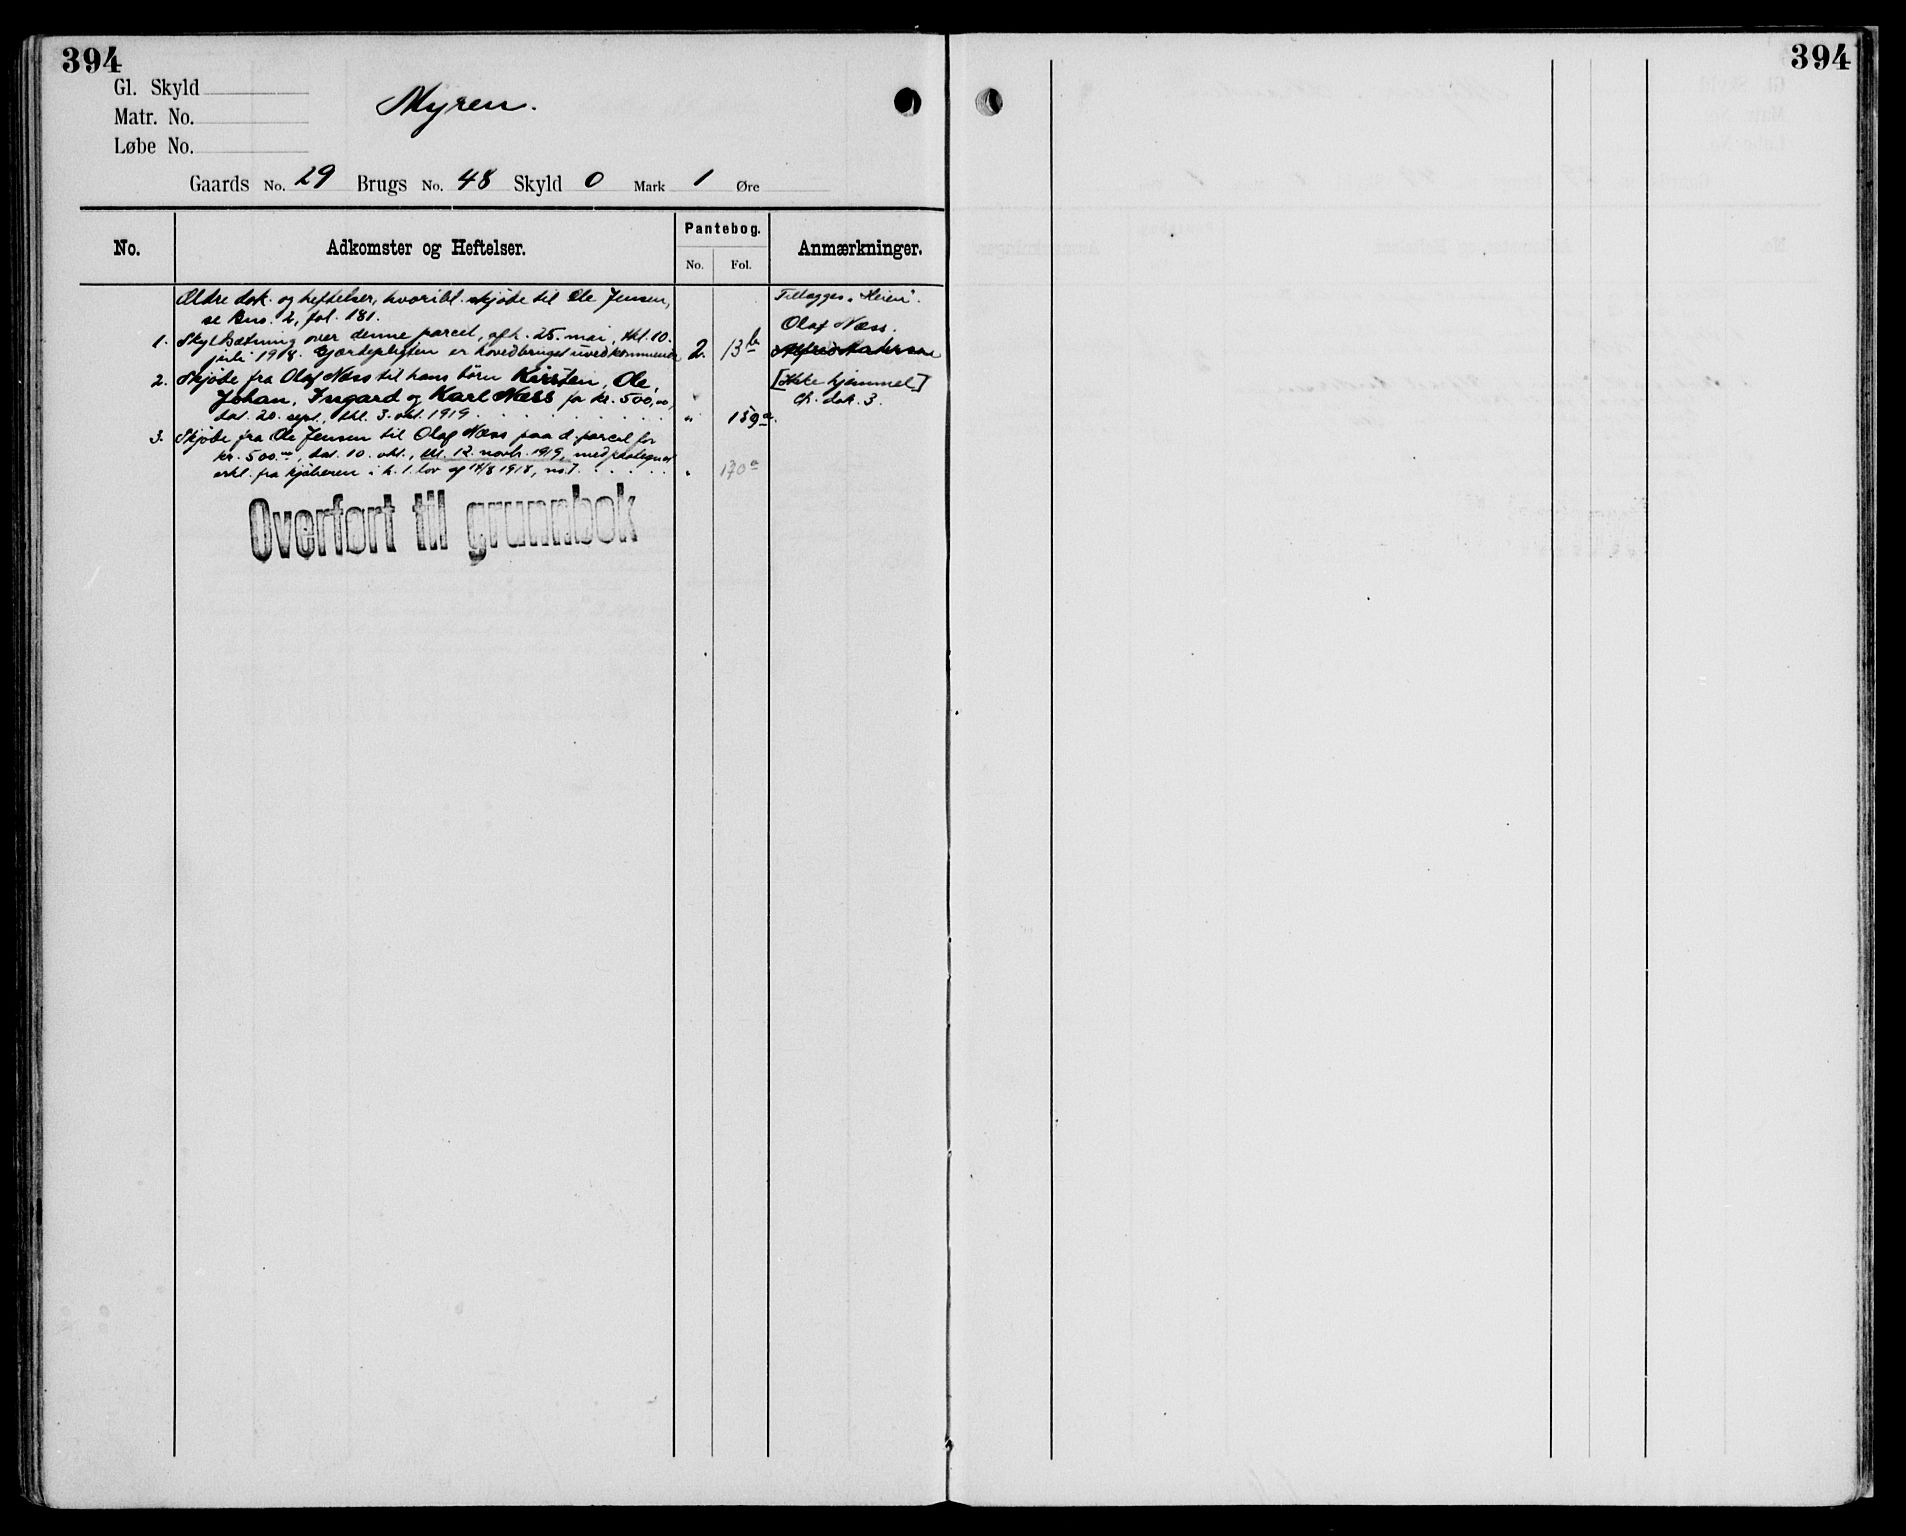 394
394
Gl. Skyld
Matr. No.
Løbe No.
Myren.
Gaards No. 29 Brugs No. 48 Skyld 0 Mark 1 Øre
No.
Adkomster og Heftelser.
Pantebog.
No. Fol.
Anmærkninger.
Ældre dok. og heftelser, hvoribl. skjøde til Ole Jensen,
se Bno. 2, fol. 181.
1. over denne parcel, afh. 25. mai, thl. 10.
juli 1918. Gjærdepligten er hovedbruget uvedkommende 2 13 b
2. Skjøde fra Olaf Næss til hans børn Kirsten, Ole,
Johan, Ingard og Karl Næss for kr. 500,00,
dat. 20. sept., thl. 3. okt. 1919. " 159 a.
3. Skjøde fra Ole Jensen til Olaf Næss paa d. parcel for
kr. 500.00, dat. 10. okt., thl. 12. novbr. 1919, med paategnet
erkl. fra kjøberen i h. t. lov af 14/8 1918, no. 7. " 170 a
Tillægges "Heien".
Olaf Næss.
[Ikke hjemmel]
Cfr. dok. 3.
Overført til grunnbok